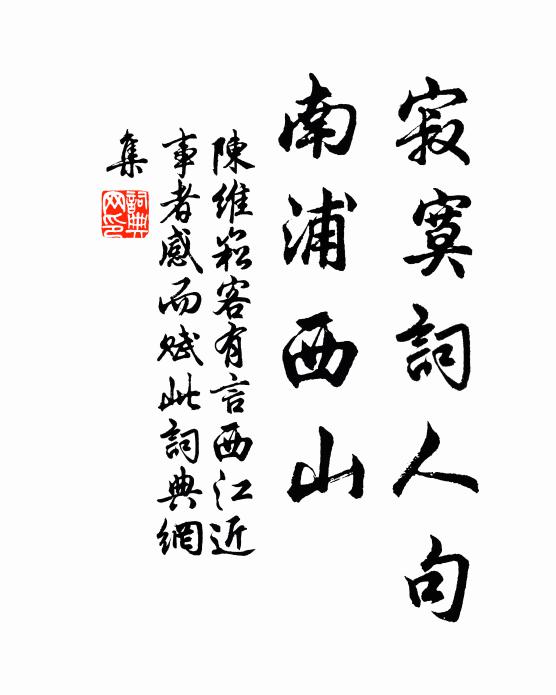 寂寞詞人句
南浦西山
陳維崧客有言西江近
事者感而賦此詞典網
集
詞典網印